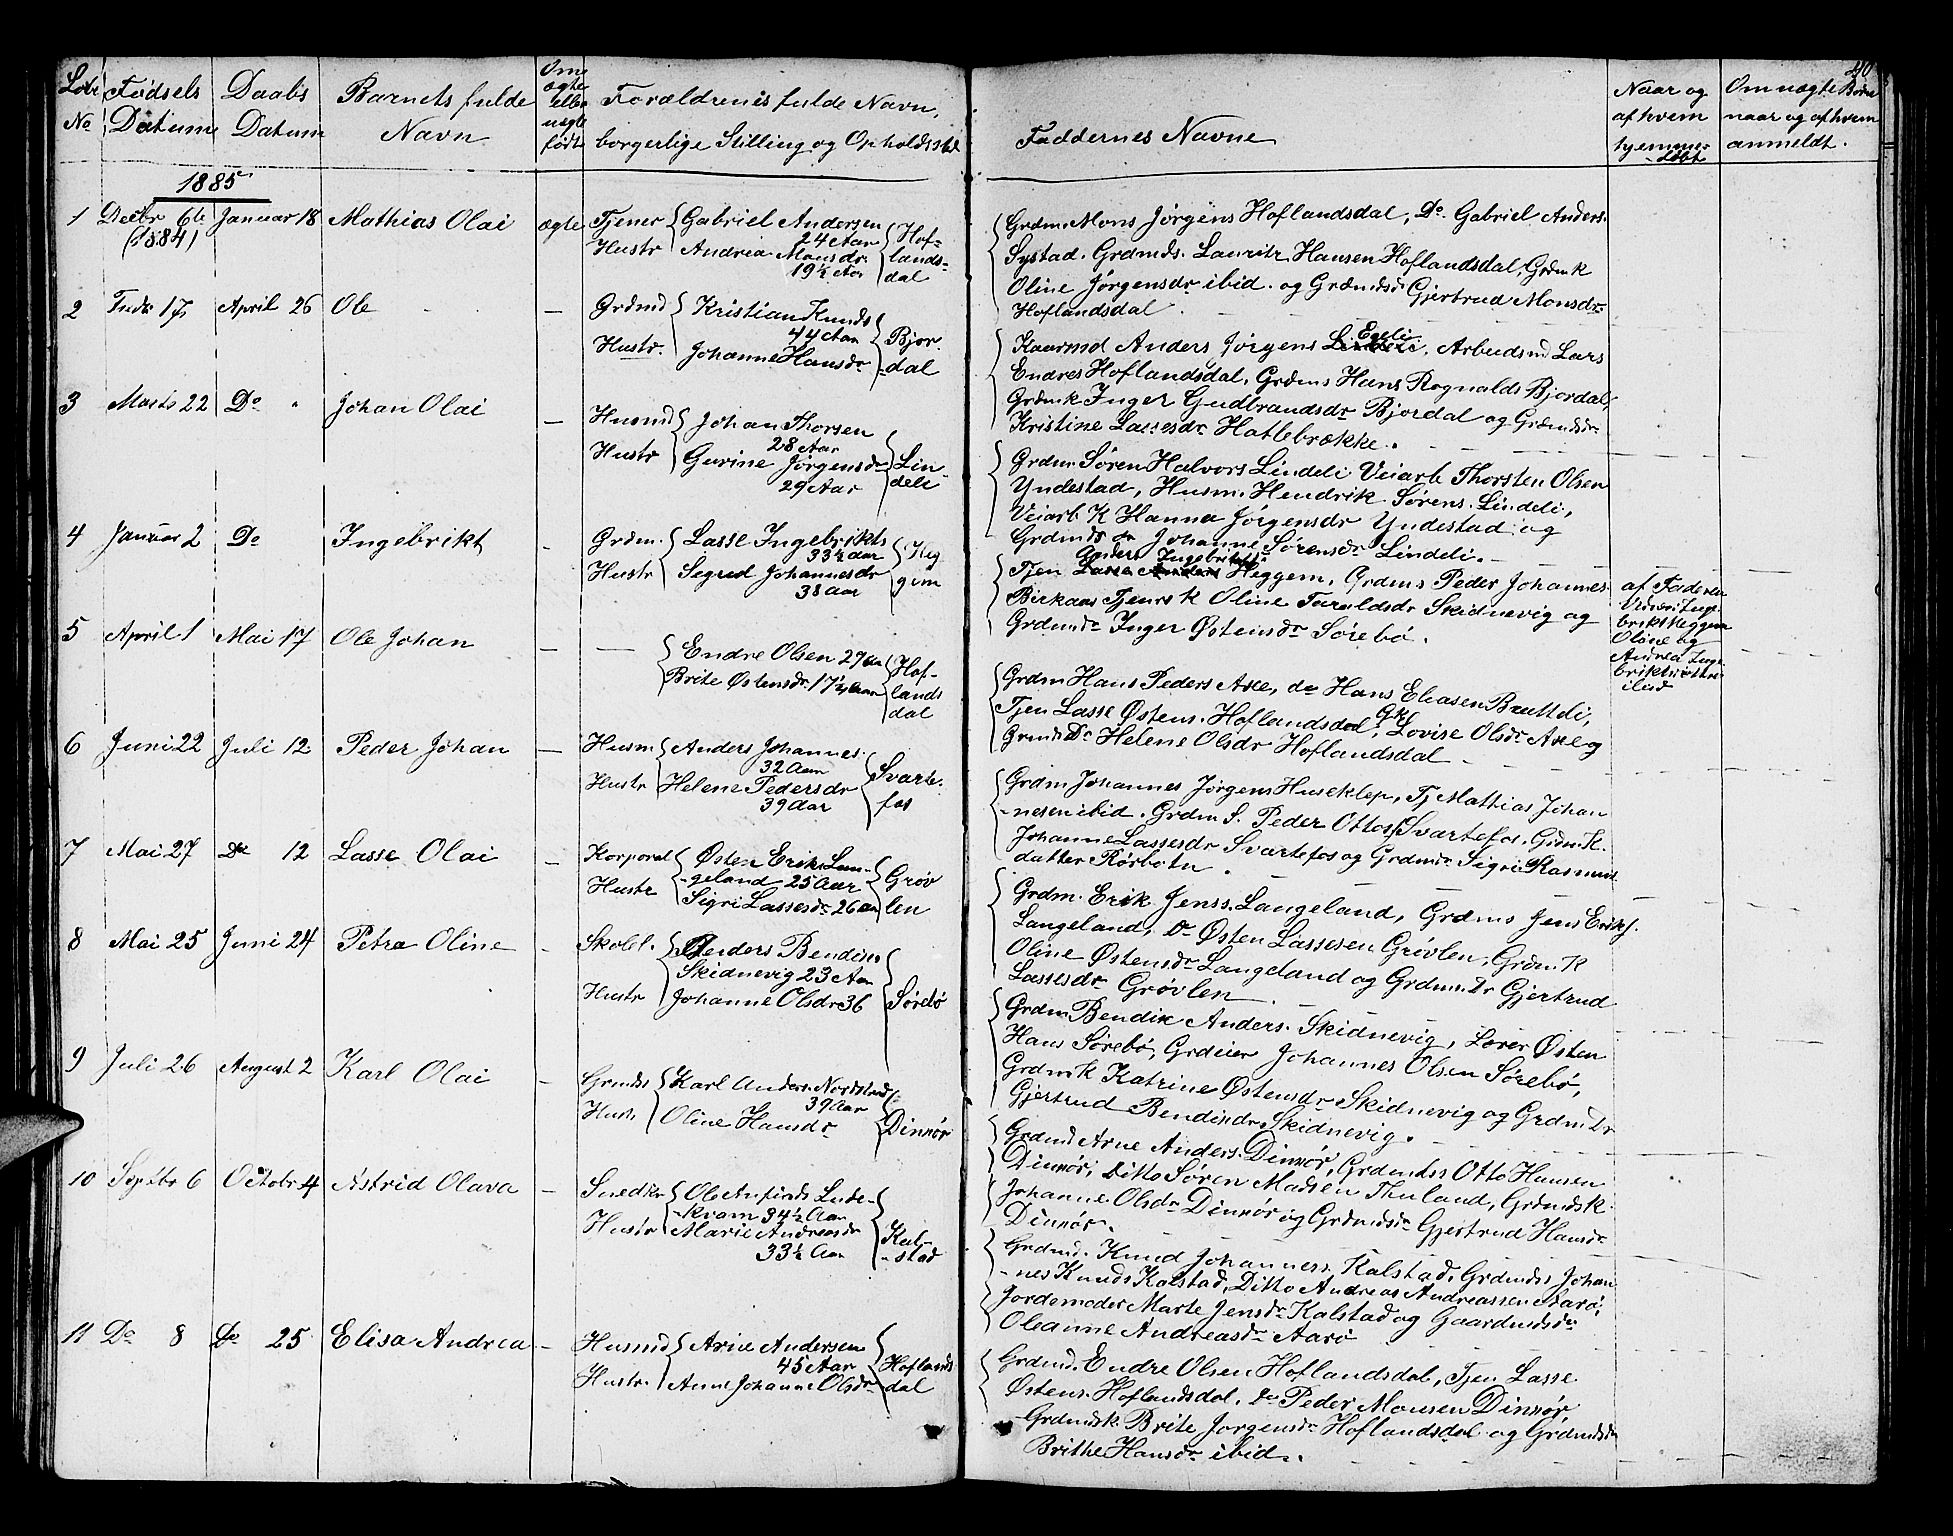 40
Løbe No
Fødsels Datum
Daabs Datum
Barnets fulde Navn
Om ægte eller uægte født
Forældrenes fulde Navn, borgerlige Stilling og Opholdssted
Faddernes Navne
Naar og af hvem hjemme-døbt
Om uægte Børn naar og af hvem anmeldt.
1885
1 Decbr 6te (1884) Januar 18 Mathias Olai ægte Tjener Gabriel Andersen
24 Aar
Hustr Andrea Monsdr
19½ Aar
Hof-
lands-
dal
Grdm Mons Jørgens Hoflandsdal, Do Gabriel Anders.
Systad. Grdmds. Lauritz Hansen Hoflandsdal, Grdmk
Oline Jørgensdr ibid. og Grdmdsd Gjertrud Monsdr
Hoflandsdal.
2 April 26 Ole — Grdmd Kristian Knuds
44 Aar
Hustr. Johanne Hansdr
Bjor-
dal
Kaarmd Anders Jørgens Lindeli, Arbeidsmd Lars
Endres Hoflandsdal, Grdms Hans Rognalds Bjordal,
Grdmk Inger Gudbrandsdr Bjordal og Grdmdsdr
Kristine Lassesdr Hatlebrække.
3 Marts 22 Do " Johan Olai — Husmd Johan Thorsen
28 Aar
Hustr Gurine Jørgensdr
29 Aar
Lin-
deli
Grdm Søren Halvors Lindeli Veiarb Thorsten Olsen
Yndestad, Husm. Hendrik Sørens. Lindeli,
Veiarb. K Hanna Jørgensdr Yndestad og
Grdmds dr Johanne Sørensdr Lindeli.
4 Januar 2 Do Ingebrikt - Grdm. Lasse Ingebrikts
33½ Aar
Hustr Segred Johannesdr
38 Aar
Heg
gem
Anders Ingebrikts
Tjen Heggem, Grdms Peder Johannes
Birkaas Tjenrs K Oline Taraldsdr Skidnevig og
Grdmdr Inger Østensdr Sørebø.
af Faderen
brikt Heggem
Oline og
Andrea Inge-
ibid
5 April 1 Mai 17 Ole Johan — — Endre Olsen 27 Aar
Brite Østensdr. 17½ Aar
Hof-
lands
dal
Grdm Hans Peders Axe, do Hans Eliasen Bratteli,
Tjen Lasse Østens. Hoflandsdal, Gk Lovise Olsdr Axe og
Grmds Dr Helene Olsdr Hoflandsdal
6 Juni 22 Juli 12 Peder Johan — Husm Anders Johannes.
32 Aar
Hustr Helene Pedersdr
39 Aar
Svarte-
fos
Grdm Johannes Jørgens Huseklep, Tj Mathias Johan
-nesen ibid. Grdm S. Peder Ottos Svartefos, Grdm K.
Johanne Lassesdr Svartefos og Grdmdr Sigri Rasmus
datter Rørbotn.
7 Mai 27 Do 12 Lasse Olai — Korporal Østen Eriks Lan-
-geland 25 Aar
Hustr Sigri Lassesdr 26 Aar
Grøv
len
Grdm. Erik Jenss. Langeland, Grdms Jens Eriks.
Langeland, Do Østen Lassesen Grøvlen, Grdm K
Oline Østensdr Langeland og Grdmdr Gjertrud
Lassesdr Grøvlen
8 Mai 25 Juni 24 Petra Oline - Skoll. Anders Bendiks
Skidnevig 23 Aar
Hustr Johanne Olsdr 36
Sørebø
Grdm Bendix Anders. Skidnevig, Lærer Østen
Hans Sørebø, Grdeier Johannes Olsen Sørebø,
Grdmk Katrine Østensdr Skidnevig og Grdm Dr
Gjertrud Bendiksdr Skidnevig.
9 Juli 26 August 2 Karl Olai - Grmds Karl Anders. Nordstrand
39 Aar
Hustr Oline Hansdr
Dinnør
Grdmd Arne Anders. Dinnør, Grdmds Otto Hansen
Dinnør, Ditto Søren Madsen Thuland, Grdmdsk.
Johanne Olsdr Dinnør og Grdmdsdr Gjertrud Hansdr
Dinnør.
10 Septbr 6 Octobr 4 Astrid Olava - Snedker Ole Arnfinds Lute-
-kvam 34½ Aar
Hustr Marie Andreasdr
33½ Aar
Kal-
-stad
Grdmd. Knud Johanness. Kalstad, Grdmds Johan
-nes Knuds Kalstad, Ditto Andreas Andreassen Aarø,
Jordemoder Marte Jensdr Kalstad og Gaardmdsdr
Oleanne Andreasdr Aarø
11 Do 8 Do 25 Elisa Andrea - Husmd Arne Andersen
45 Aar
Hustr. Anne Johanne Olsdr
Hoflands-
dal
Grdmd. Endre Olsen Hoflandsdal, Tjen Lasse
Østens. Hoflandsdal, Do Peder Monsen Dinnør,
Grdmdsk Brite Jørgensdr Hoflandsdal og Grdmdsdr
Brithe Hansdr ibid.